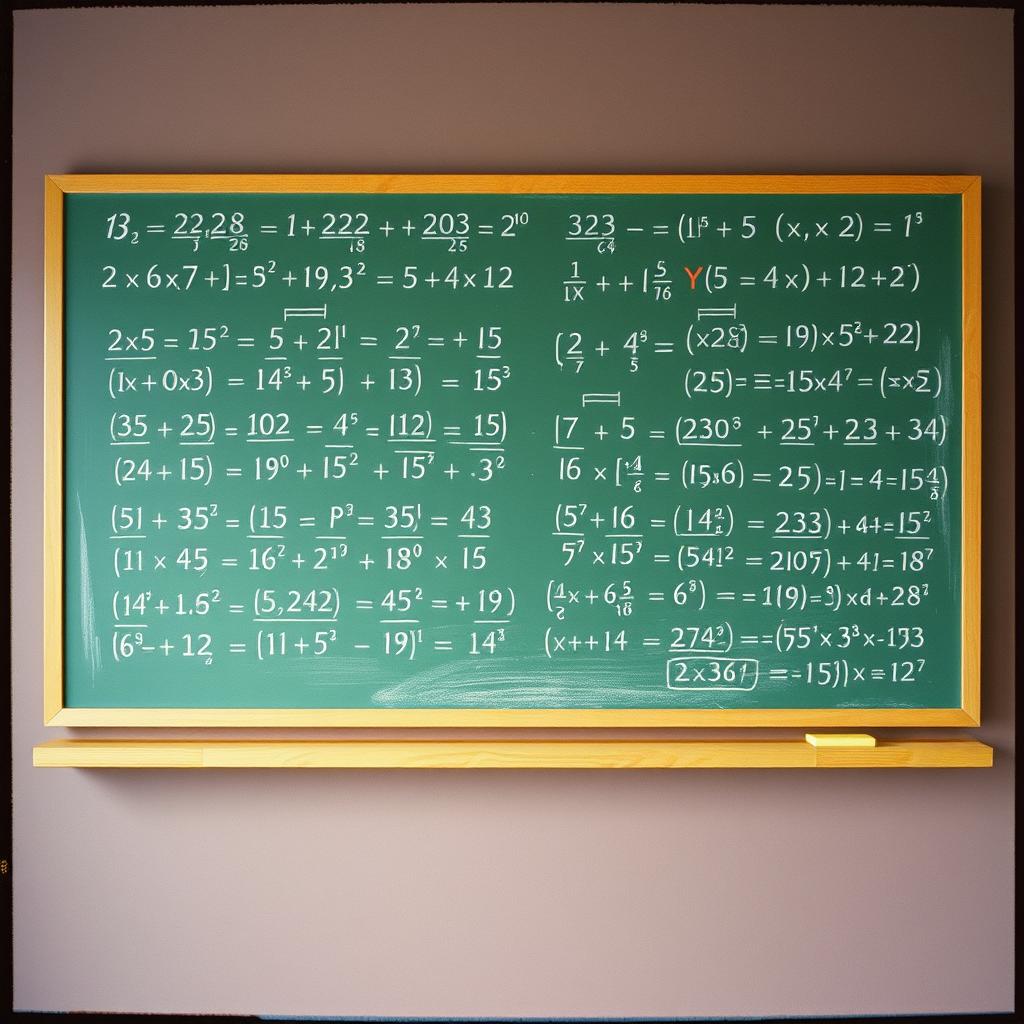 13₂ = 22,28/26 = 1+222/18 ++203/25 = 2¹⁰
2 x 6x7 +]=3²+19,3² = 5+4x12
2x5 = 15² = 5+2|¹ = 2⁷ = + 15
(1x+0x3) = 14³+5) + 13) = 15³
(35 + 25) = 102 = 4⁵ = 112) = 15)
(24+15) = 19⁰ + 15² + 15⁷ + .3²
(51 + 35² = (15 = P³= 35,¹ = 43
(11 x 45 = 16² + 2¹³ + 18⁰ x 15
(14³+1.5² = (5,242) = 45² = +19)
(6⁹-+ 12 = (11+5² - 19)¹ = 14³
323/64 - = (1|⁵ + 5 (x,x 2) = 1³
1/1X ++ 1 5/76 Y(5 = 4x)+12+2)
(2/7 + 4⁹/5 = (x28) = 19)x5²+22)
(25)=≡=15x4⁷=(=x5)
[7 + 5 = (230³ + 25⁷+23+34)
16 x [4/8 = (15,6) = 25)=1=4=15 4/8)
(5⁷+16 = (14²) = 233)+4+=15²
5⁷ x15⁷ =(541² = 2105)+41=18⁷
(4/2x+6 5/18 = 6³) ==119)=9)xd+28²
(x++14 = 274³)==(55¹x3³x-153
2x361 =-15))x=12⁷